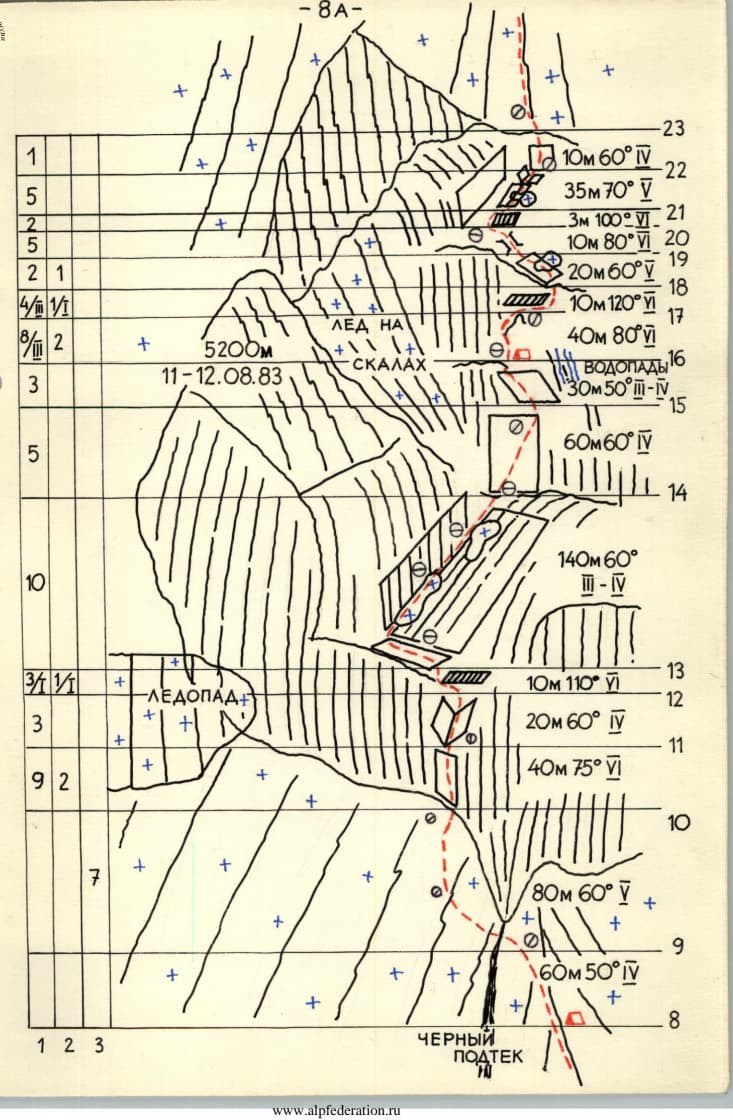 - 8А -
23
1
10м 60° IV
22
5
35м 70° V
21
2
3м 100° VI
5
10м 80° VI
20
19
2 1
20м 60° V
18
4/III 1/I
10м 120° VI
17
ЛЕД НА
8/III 2
40м 80° VI
5200м
СКАЛАХ
16
ВОДОПАДЫ
11-12.08.83
3
30м 50° III-IV
15
5
60м 60° IV
14
10
140м 60°
III - IV
13
3/I 1/I
10м 110° VI
ЛЕДОПАД
12
3
20м 60° IV
11
9 2
40м 75° VI
10
7
80м 60° V
9
60м 50° IV
8
1 2 3
ЧЕРНЫЙ
ПОДТЕК
www.alpfederation.ru